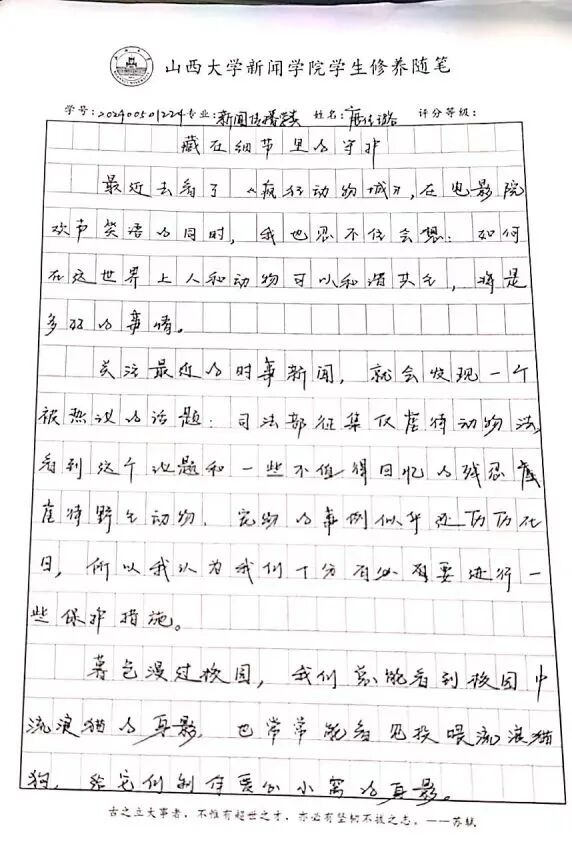 山西大学新闻学院学生修养随笔
学号:202400501224专业:新闻传播学类 姓名: 评分等级:
藏在细节里的守护
最近去看了《疯狂动物城》,在电影院
欢声笑语的同时,我也忍不住会想:如何
在这世界上人和动物可以和谐共生,将是
多好的事情。
关注最近的时事新闻,就会发现一个
被热议的话题:司法部征集反虐待动物法,
看到这个议题和一些不值得回忆的残忍虐
虐待野生动物、宠物的事例似乎还历历在
目,所以我认为我们十分有必有要进行一
些保护措施。
暮色漫过校园,我们总能看到校园中
流浪猫的身影,也常常能看见投喂流浪猫
狗,给它们制作爱心小窝的身影。
古之立大事者,不惟有超世之才,亦必有坚韧不拔之志。——苏轼